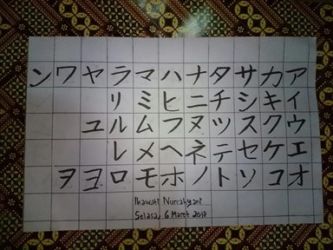 アイウエオ
カキクケコ
サシスセソ
タチツテト
ナニヌネノ
ハヒフヘホ
マミムメモ
ラリルレロ
ヤユヨ
ワヲ
ン
Selasa, 6 March